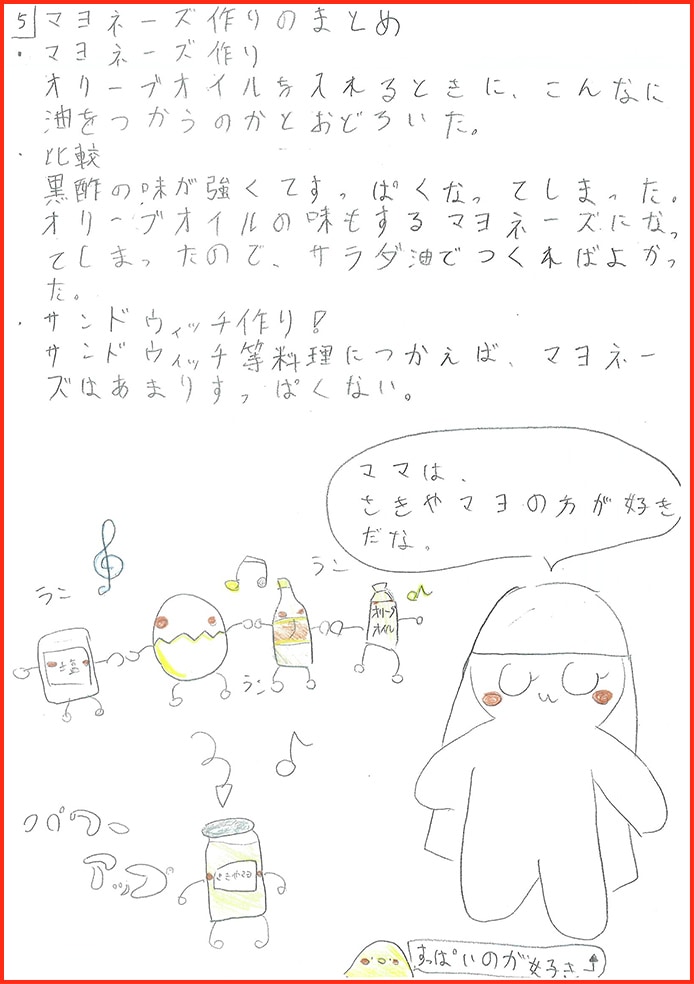 5 マヨネーズ作りのまとめ
・マヨネーズ作り
オリーブオイルを入れるときに、こんなに
油をつかうのかとおどろいた。
・比較
黒酢の味が強くてすっぱくなってしまった。
オリーブオイルの味もするマヨネーズになっ
てしまったので、サラダ油でつくればよかっ
た。
・サンドウィッチ作り!
サンドウィッチ等料理につかえば、マヨネー
ズはあまりすっぱくない。
ママは、
さきやマヨの方が好き
だな。
ラン
ラン
ラン
塩
す
オリーブ
オイル
パワー
アップ
さきやマヨ
すっぱいのが好き